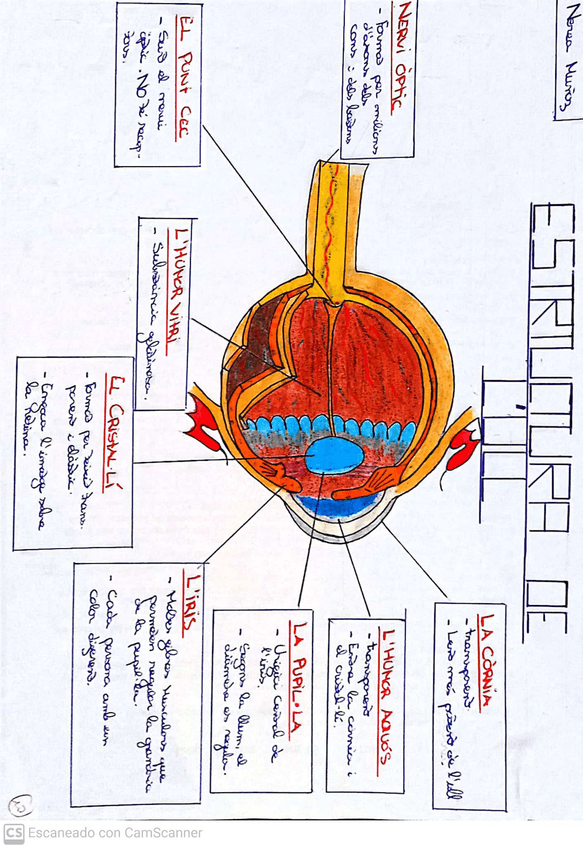 Nerea Muñoz
ESTRUCTURA DE
L'ULL
NERVI ÒPTIC
- Format per milions
d'axons dels
cons i dels bastons
EL PUNT CEC
- Surt el nervi
òptic. NO té recep-
tors.
L'HUMOR VITRI
- Substància gelatinosa.
EL CRISTAL·LÍ
- Format per teixit trans-
parent i elàstic.
- Enfoca l'imatge sobre
la retina.
LA CÒRNIA
- transparent.
- Lent més potent de l'ull
L'HUMOR AQUÓS
- transparent
- Entre la còrnia i
el cristal·lí.
LA PUPIL·LA
- Orifici central de
l'iris.
- Segons la llum, el
diàmetre es regula.
L'IRIS
- Moltes fibres musculars que
permeten regular la grandària
de la pupil·la.
- Cada persona amb un
color diferent.
CS Escaneado con CamScanner